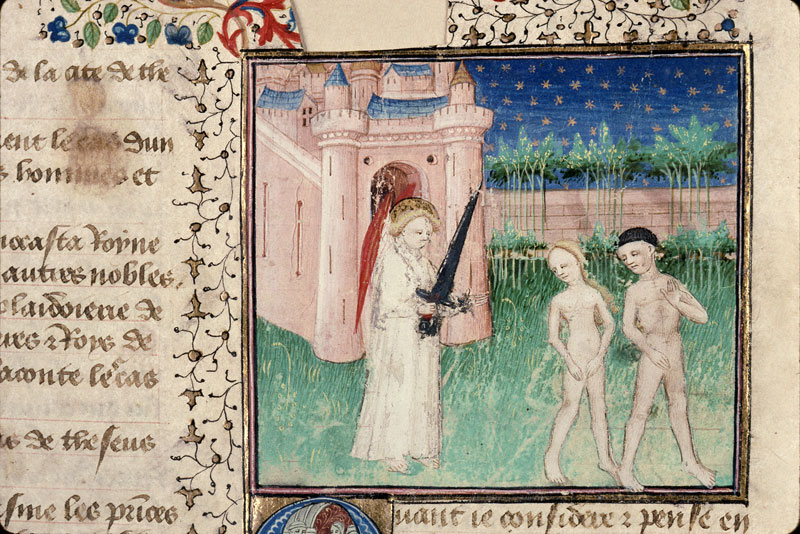 de la cite de the
ent le cas dun
s hommes et
iocasta Royne
autres nobles.
plaidoierie de
ures & Roys de
aconte le cas
s de theseus
sme les princes
uant ie considere & pense en